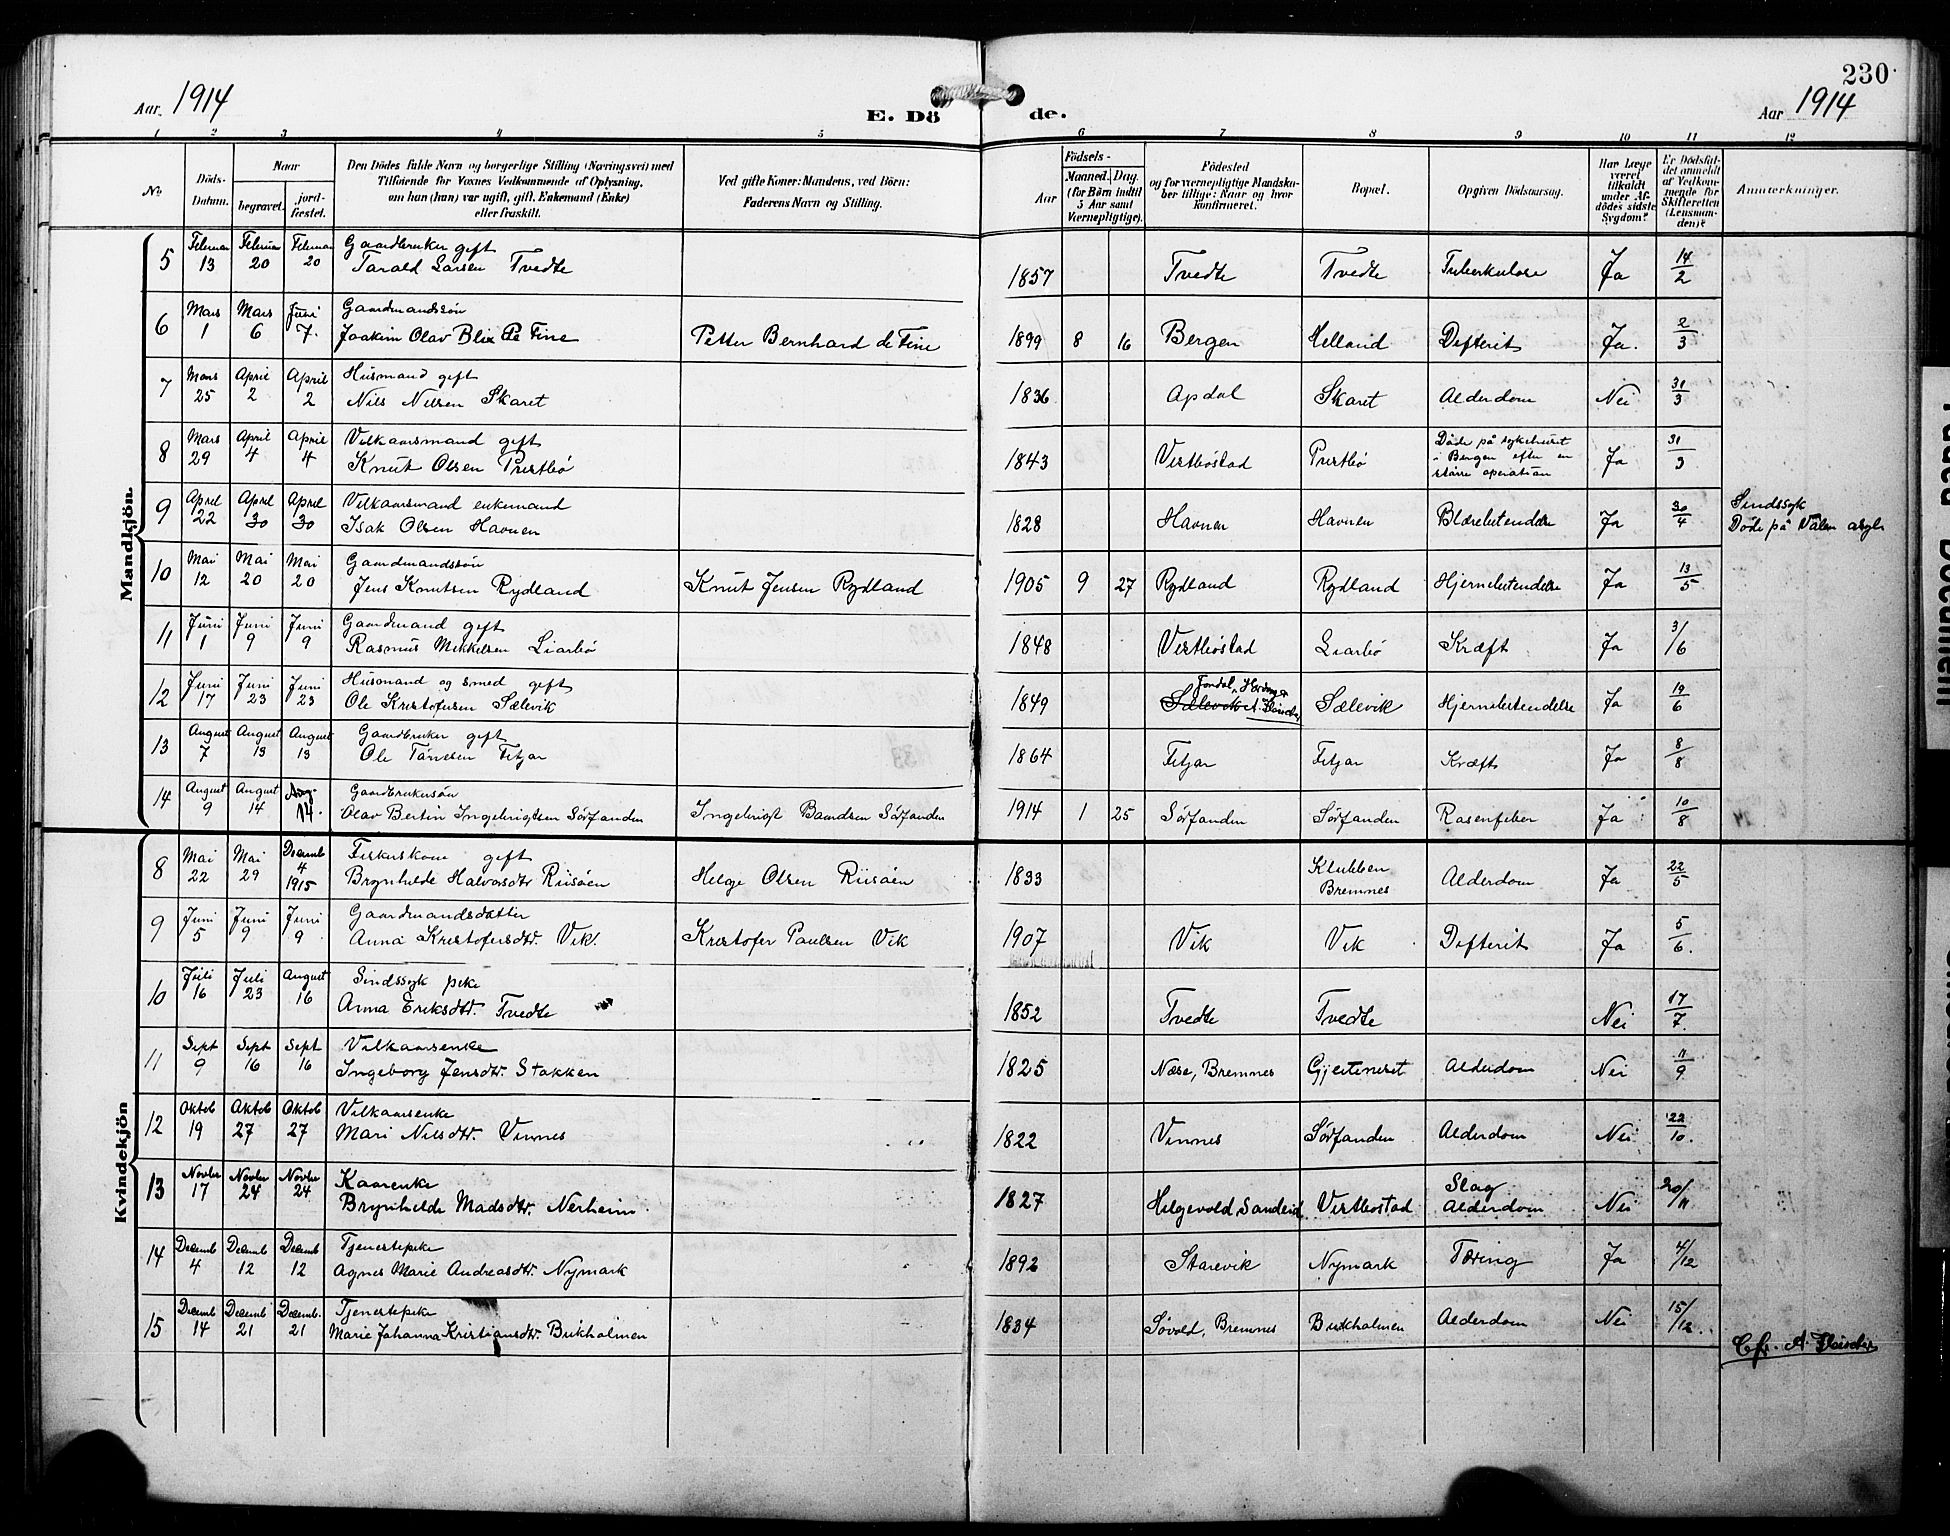 230
Aar 1914
E. Dö
de.
Aar 1914
1 2 3 4 5 6 7 8 9 10 11 12
No
Döds-
Datum.
Naar
begravet.
jord-
fæstet.
Den Dödes fulde Navn og borgerlige Stilling (Næringsvei) med
Tilföiende for Voxnes Vedkommende af Oplysning,
om han (hun) var ugift, gift, Enkemand (Enke)
eller fraskilt.
Ved gifte Koner: Mandens, ved Börn:
Faderens Navn og Stilling.
Födsels-
Aar
Maaned. Dag.
(for Börn indtil
5 Aar samt
Værnepligtige).
Födested
og for værnepligtige Mandska-
ber tillige: Naar og hvor
konfirmeret.
Bopæl.
Opgiven Dödsaarsag.
Har Læge
været
tilkaldt
under Af-
dödes sidste
Sygdom?
Er Dödsfal-
det anmeldt
af Vedkom-
mende for
Skifteretten
(Lensman-
den)?
Anmærkninger.
Mandkjön.
5 Februar 13 Februar 20 Februar 20 Gaardbruker gift
Tarald Larsen Tvedte 1857 Tvedte Tvedte Tuberkulose Ja 14/2
6 Mars 1 Mars 6 Juni 7. Gaardmandssön
Joakim Olav Blix de Fine Petter Bernhard de Fine 1899 8 16 Bergen Helland Difterit Ja. 2/3
7 Mars 25 April 2 April 2 Husmand gift
Nils Nilsen Skaret 1836 Opdal Skaret Alderdom Nei 31/3
8 Mars 29 April 4 April 4 Vilkaarsmand gift
Knut Olsen Prestbø 1843 Vestbøstad Prestbø Døde på sykehuset
i Bergen efter en
større operation Ja 31/3
9 April 22 April 30 April 30 Vilkaarsmand enkemand
Isak Olsen Havnen 1828 Havnen Havnen Blærebetendelse Ja 30/4 Sindssyk
Døde på Valen asyl
10 Mai 12 Mai 20 Mai 20 Gaardmandssön
Jens Knutsen Rydland Knut Jensen Rydland 1905 9 27 Rydland Rydland Hjernebetendelse Ja 13/5
11 Juni 1 Juni 9 Juni 9 Gaardmand gift
Rasmus Mikkelsen Liarbø 1848 Vestbøstad Liarbø Kræft Ja 3/6
12 Juni 17 Juni 23 Juni 23 Husmand og smed gift
Ole Kristofersen Sælevik 1849 Jondal, Hardanger
Sælevik Sælevik Hjernebetendelse Ja 19/6
13 August 7 August 13 August 13 Gaardbruker gift
Ole Tönesen Fitjar 1864 Fitjar Fitjar Kræft Ja 8/8
14 August 9 August 14 Aug. 14. Gaardbrukersön
Olav Bertin Ingebrigtsen Sørfonden Ingebrigt Baardsen Sørfonden 1914 1 25 Sørfonden Sørfonden Rosenfeber Ja 10/8
Kvindekjön
8 Mai 22 Mai 29 Decemb 4 1915 Fiskerskone gift
Brynhilde Halvorsdtr Riisöen Helge Olsen Riisöen 1833 Klubben
Bremnes Alderdom Ja 22/5
9 Juni 5 Juni 9 Juni 9 Gaardmandsdatter
Anna Kristofersdtr. Vik. Kristofer Paulsen Vik 1907 Vik Vik Difterit Ja 5/6
10 Juli 16 Juli 23 August 16 Sindssyk pike
Anna Eriksdtr. Tvedte 1852 Tvedte Tvedte Nei 17/7.
11 Sept 9 Sept 16 Sept 16 Vilkaarsenke
Ingeborg Jensdtr. Stokken 1825 Næse, Bremnes Gjerteneset Alderdom Nei 11/9
12 Oktob 19 Oktob 27 Oktob 27 Vilkaarsenke
Mari Nilsdtr. Vinnes 1822 Vinnes Sørfonden Alderdom Nei 22/10.
13 Novbr 17 Novbr 24 Novbr 24 Kaarenke
Brynhilde Madsdtr. Nerheim. 1827 Helgevold, Sandeid Vestbøstad Slag
Alderdom Nei 20/11
14 Decemb 4 Decemb 12 Decemb 12 Tjenestepike
Agnes Marie Andreasdtr. Nymark 1892 Starevik Nymark Tæring Ja 4/12
15 Decemb 14 Decemb 21 Decemb. 21 Tjenestepike
Marie Johanna Kristiansdtr. Bukholmen 1834 Søvold, Bremnes Bukholmen Alderdom Nei 15/12.
Cfr. A.